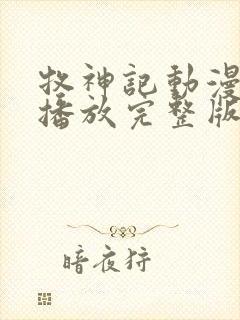 牧神記動漫
播放完整版
暗夜狩